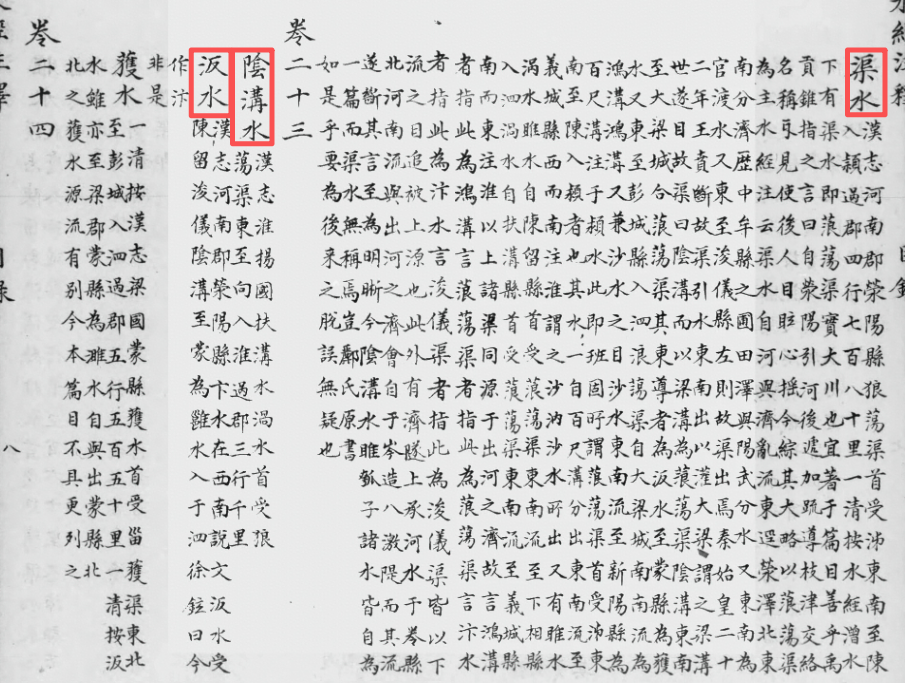 渠水 漢志河南郡滎陽縣狼蕩渠首受泲東南至陳
入潁過郡四行七百八十里一清按水經水
下有渠之水即蒗蕩渠實大川也宜著于篇目善乎禹
貢錐指之言曰自滎陽引河後遞加疏導枝津交絡
名稱互見使後人目眩心搖今綜其大略以滎澤渠
為主水經注云渠水自河與濟亂流東逕滎澤北東
南分濟歷中牟縣之圃田澤與陽武分水又東為
官渡水又東至浚儀縣左則故渠出焉秦始皇二十
二年王賁斷故渠引水東南出以灌大梁謂之梁溝
世遂目故渠曰陰溝而以梁溝為蒗蕩渠陰溝東南
至大梁城合蒗蕩渠其東導者為汳水至蒙縣為獲
水又東至彭城縣入泗浪蕩渠自大梁城南南流為
鴻溝鴻溝又兼沙水之目沙水東南流至新陽縣為
百尺溝注于潁水此即班固所謂蒗蕩渠首受泲東
南至陳入潁者也其一水自百尺溝分出東南流至
義城縣西而南注淮謂之沙汭沙水所出又有睢水
渦水睢水自陳留縣首受蒗蕩渠東南流至下相縣
入泗渦水自扶溝縣首受蒗蕩渠東南流至義城縣
南而東注淮以上諸渠同源于出河之濟故言鴻溝
者指此為鴻溝言蒗蕩渠者指此為蒗蕩渠言汴水
者指此為汴水言浚儀渠者指此為浚儀渠皆以下
流之目追被上源也此外又有濟隧上承河水而于卷縣
北河南流與出河之濟會自于岑造八激隄而其流
遂斷其言至為明晰今陰溝水睢水瓠子諸水皆自為
一篇而渠水無稱焉豈酈氏原書
如是乎要為後來之脫誤無疑也
卷二十三
陰溝水 漢志淮揚國扶溝渦水首受狼
蕩渠東至向入淮過郡三行千里
汳水 漢志河南郡滎陽卞水在西南說文汳水受
陳留浚儀陰溝至蒙縣為雝水入于泗徐鉉曰今
作汴
非是
獲水 漢志梁國蒙縣獲水首受甾獲渠東北
至彭城入泗過郡五行五百五十里清按汳
水至梁郡蒙縣為雝水自與出蒙縣北
水雖亦
北之獲水源流有別今本篇目不具更列之
卷二十四